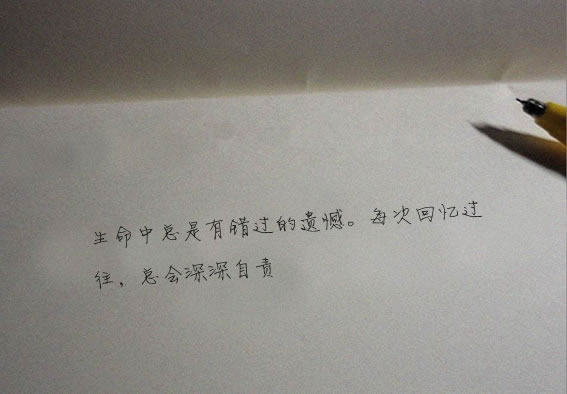 生命中总是有错过的遗憾。每次回忆过
往，总会深深自责